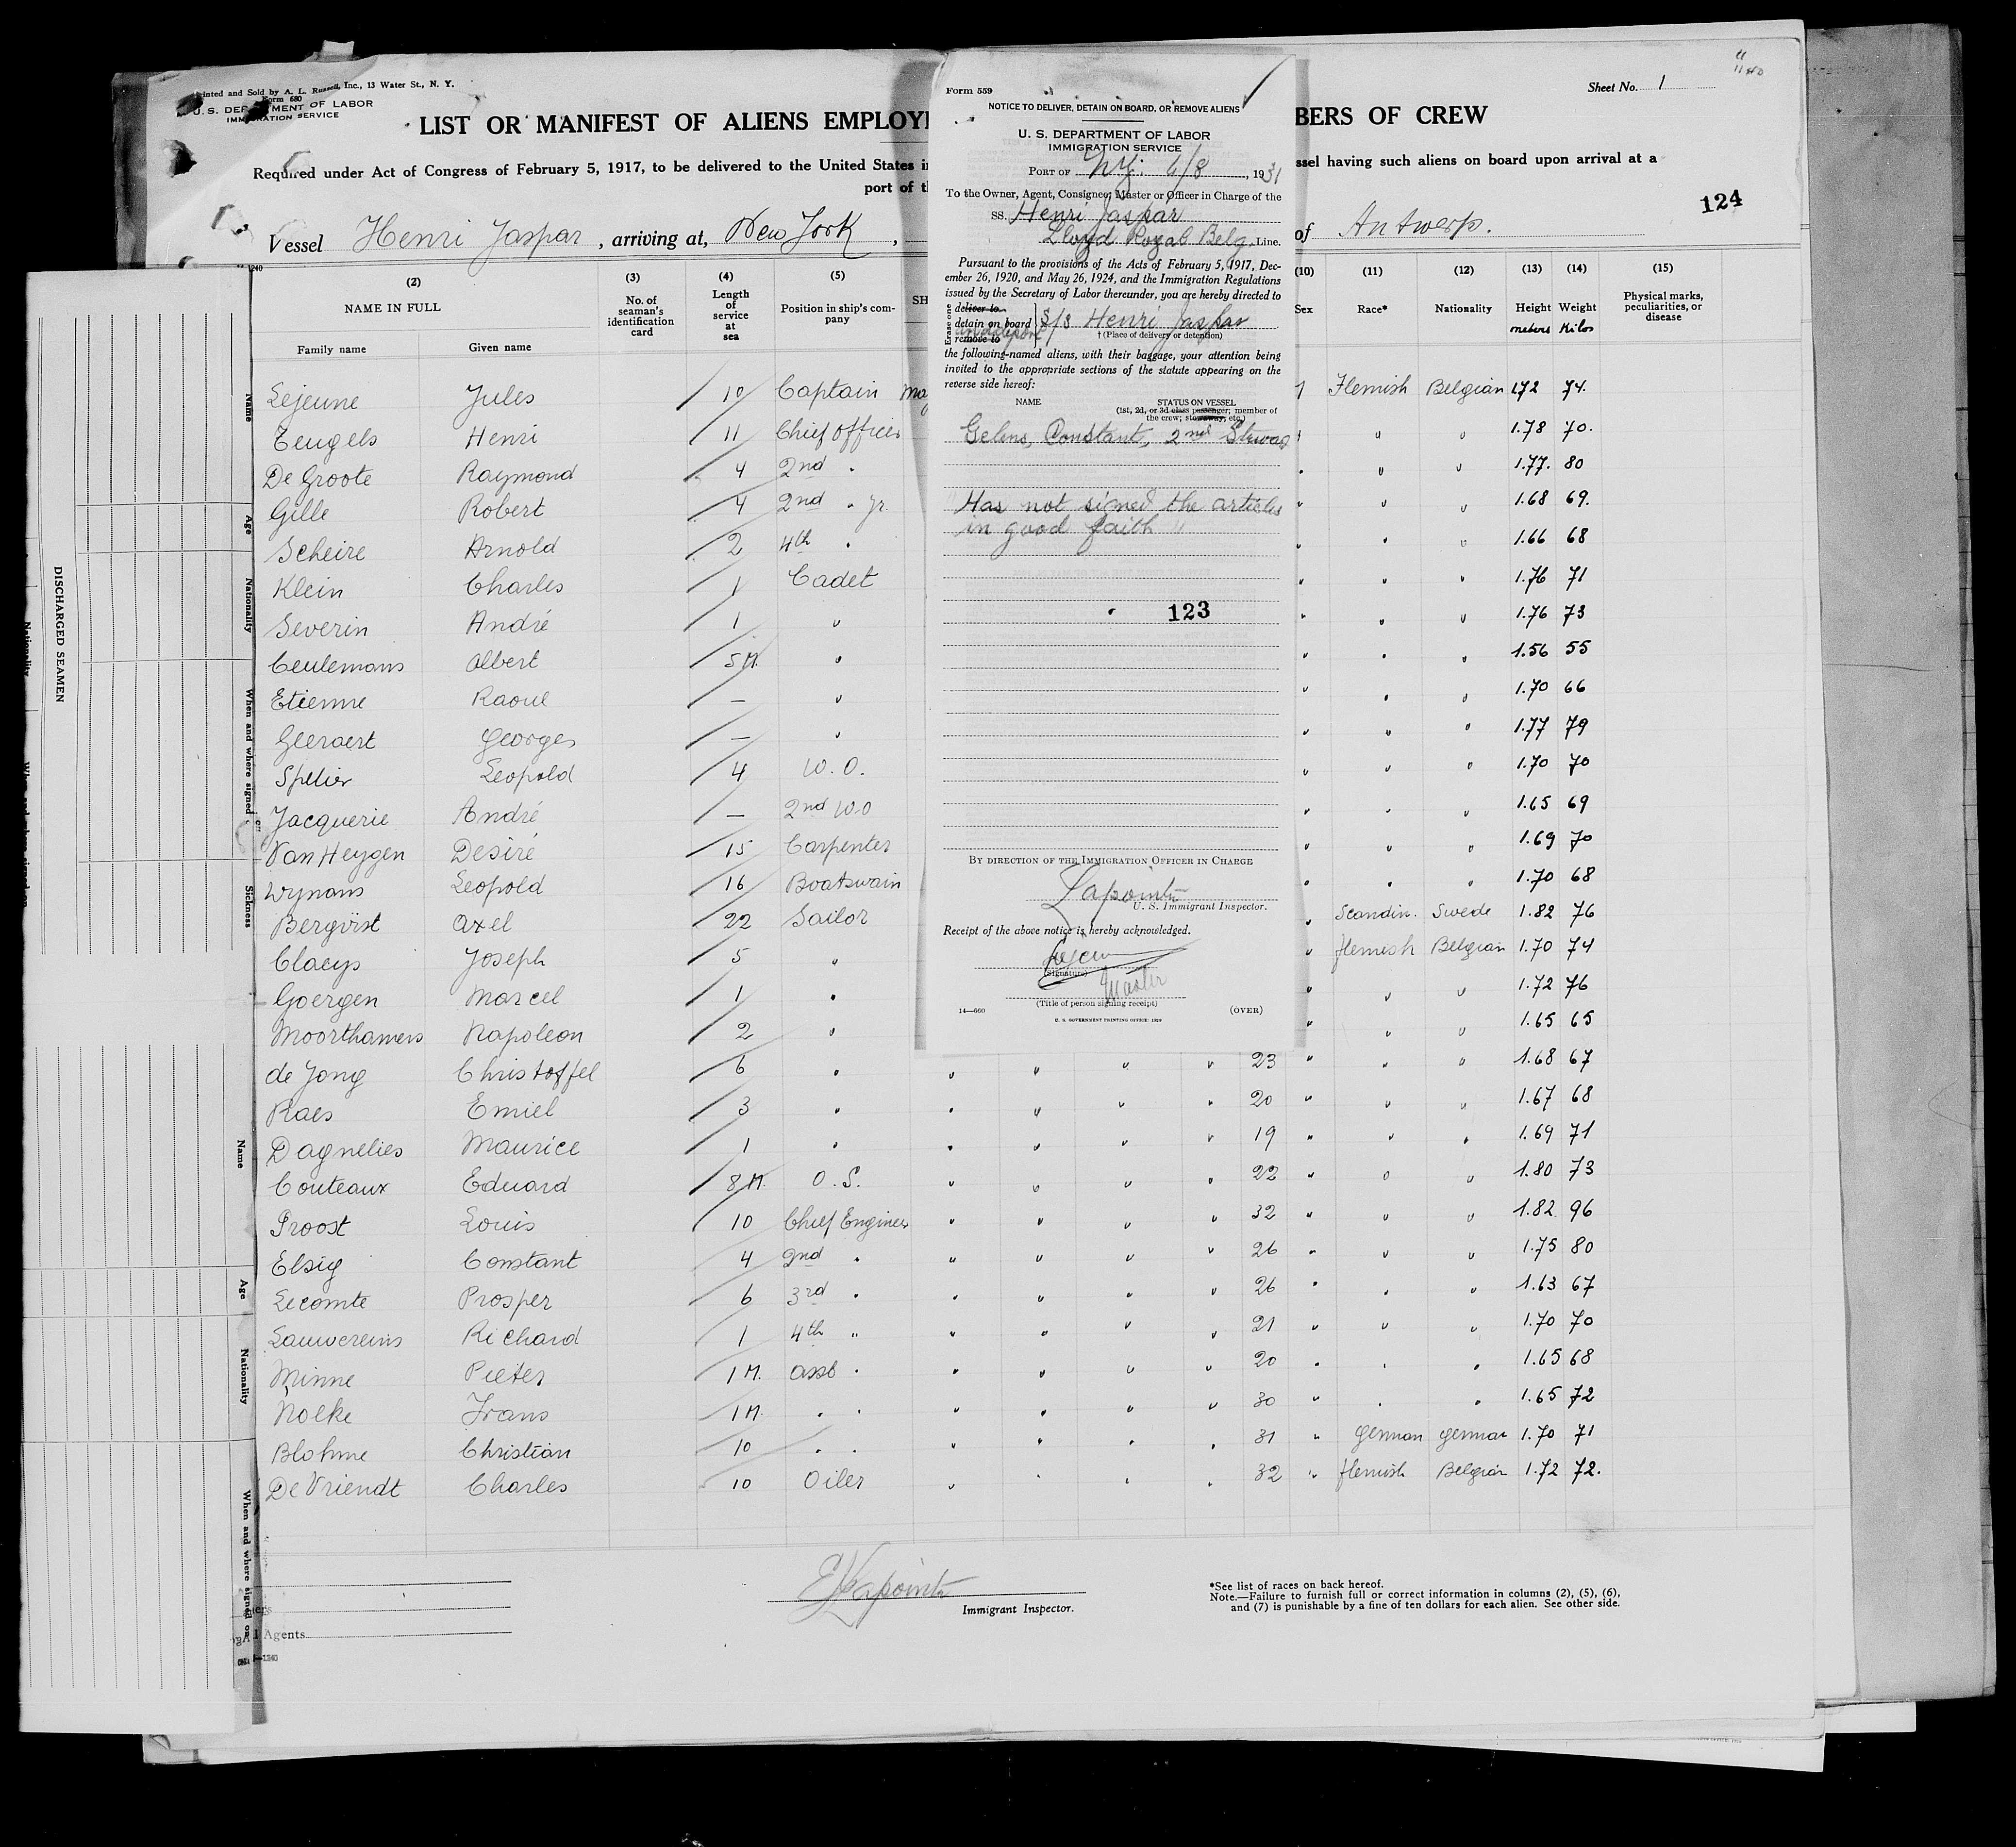 Printed and Sold by A. L. Russell, Inc., 13 Water St., N. Y.
Form 680
U. S. DEPARTMENT OF LABOR
IMMIGRATION SERVICE
Sheet No. 1
LIST OR MANIFEST OF ALIENS EMPLOYE
BERS OF CREW
Required under Act of Congress of February 5, 1917, to be delivered to the United States i
ssel having such aliens on board upon arrival at a
port of th
124
Vessel Henri Jaspar, arriving at, New York,
of Antwerp.
(2) (3) (4) (5)
NAME IN FULL
Family name Given name
No. of seaman's identification card
Length of service at sea
Position in ship's company
SH
(10) (11) (12) (13) (14) (15)
Sex Race* Nationality Height meters Weight Kilos Physical marks, peculiarities, or disease
Lejeune Jules 10 Captain Flemish Belgian 1.72 74.
Teugels Henri 11 Chief Officer " " 1.78 70.
De Groote Raymond 4 2nd " " " " 1.77. 80
Gille Robert 4 2nd " Jr. " " " 1.68 69.
Scheire Arnold 2 4th " " " " 1.66 68
Klein Charles 1 Cadet " " " 1.76 71
Severin André 1 " " " " 1.76 73
Ceulemans Albert 5 M. " " " " 1.56 55
Etienne Raoul — " " " " 1.70 66
Geeraert Georges — " " " " 1.77 79
Spelier Leopold 4 W. O. " " " 1.70 70
Jacquerie André — 2nd W.O " " " 1.65 69
Van Heygen Desiré 15 Carpenter " " " 1.69 70
Wynans Leopold 16 Boatswain " " " 1.70 68
Bergvist Axel 22 Sailor " Scandin. Swede 1.82 76
Claeys Joseph 5 " " flemish Belgian 1.70 74
Goergen Marcel 1 " " " " 1.72 76
Moorthamers Napoleon 2 " " " " 1.65 65
de Jong Christoffel 6 " " " " " 23 " " " 1.68 67
Raes Emiel 3 " " " " " 20 " " " 1.67 68
Dagnelies Maurice 1 " " " " " 19 " " " 1.69 71
Couteaux Eduard 8 M. O. S. " " " " 22 " " " 1.80 73
Proost Louis 10 Chief Engineer " " " " 32 " " " 1.82 96
Elsig Constant 4 2nd " " " " " 26 " " " 1.75 80
Lecomte Prosper 6 3rd " " " " " 26 " " " 1.63 67
Lauwereins Richard 1 4th " " " " " 21 " " " 1.70 70
Minne Pieter 1 M. asst " " " " " 20 " " " 1.65 68
Nolke Frans 1 M. " " " " " " 30 " " " 1.65 72
Blohme Christian 10 " " " " " " 31 " German German 1.70 71
De Vriendt Charles 10 Oiler " " " " 32 " flemish Belgian 1.72 72.
Immigrant Inspector.
*See list of races on back hereof.
Note.—Failure to furnish full or correct information in columns (2), (5), (6),
and (7) is punishable by a fine of ten dollars for each alien. See other side.
Form 559
NOTICE TO DELIVER, DETAIN ON BOARD, OR REMOVE ALIENS
U. S. DEPARTMENT OF LABOR
IMMIGRATION SERVICE
PORT OF N.Y. 6/8, 1931
To the Owner, Agent, Consignee, Master or Officer in Charge of the
SS. Henri Jaspar
Lloyd Royal Belg. Line.
Pursuant to the provisions of the Acts of February 5, 1917, Dec-
ember 26, 1920, and May 26, 1924, and the Immigration Regulations
issued by the Secretary of Labor thereunder, you are hereby directed to
Erase one
deliver to
detain on board S/S Henri Jaspar
remove to
† (Place of delivery or detention)
the following-named aliens, with their baggage, your attention being
invited to the appropriate sections of the statute appearing on the
reverse side hereof:
NAME
STATUS ON VESSEL
(1st, 2d, or 3d class passenger; member of
the crew; stowaway, etc.)
Gelens, Constant, 2nd Steward
"Has not signed the articles
in good faith"
123
BY DIRECTION OF THE IMMIGRATION OFFICER IN CHARGE
Lapointe
U. S. Immigrant Inspector.
Receipt of the above notice is hereby acknowledged.
(Signature)
Master
(Title of person signing receipt)
14—660
(OVER)
U. S. GOVERNMENT PRINTING OFFICE: 1929
DISCHARGED SEAMEN
Name
Age
Nationality
When and where signed
Sickness
Name
Age
Nationality
When and where signed on
Agents